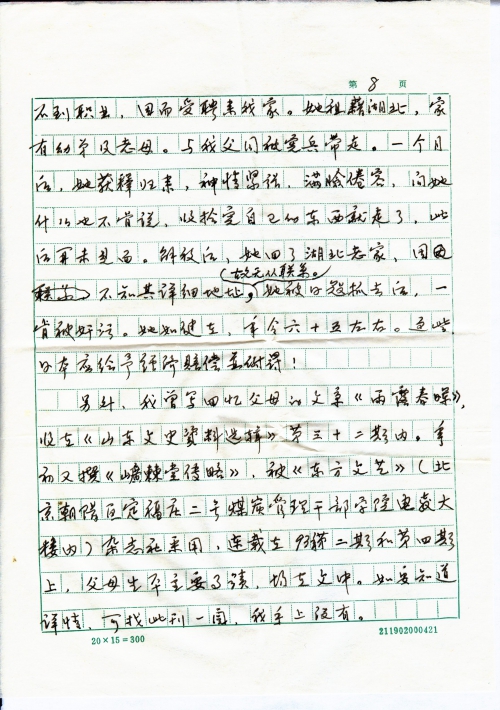 第 8 页
不到职业，因而受聘来我家。她祖籍湖北，家
有幼弟及老母。与我父同被宪兵带走。一个月
后，她获释归来，神情紧张，满脸倦容，问她
什么也不肯说，收拾完自己的东西就走了，此
后再未见面。解放后，她回了湖北老家，因
故无从联系。
不知其详细地址，她被日寇抓去后，一
肯被奸污。她如健在，年今六十五左右。这些
日本应给予经济赔偿并谢罪！
另外，我曾写回忆父母的文章《雨露春晖》，
收在《山东文史資料选辑》第三十二期内。年
初又撰《嶙棘堂传略》，被《东方文艺》（北
京朝阳区定福庄二号煤炭管理干部学院电教大
楼内）杂志社采用，连载在93第二期和第四期
上，父母生卒主要事迹，均在文中。如要知道
详情，可找此刊一阅，我手上没有。
20×15=300
211902000421